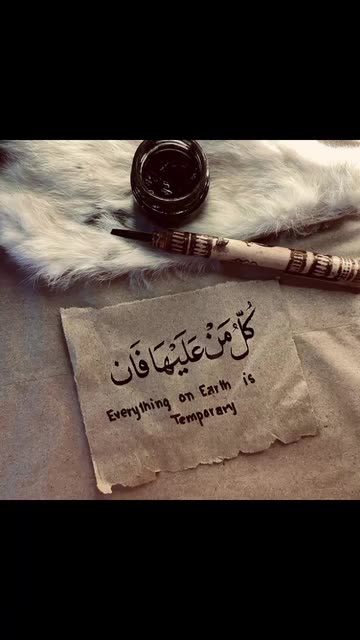 كُلُّ مَنْ عَلَيْهَا فَان
Everything on Earth is
Temporary